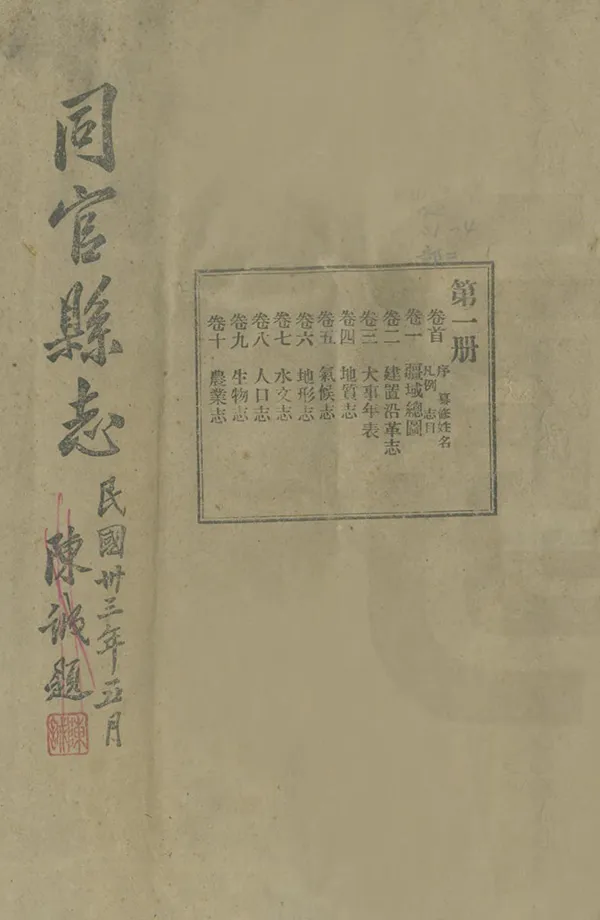 第一册
卷首 序 纂修姓名
凡例 志目
卷一 疆域總圖
卷二 建置沿革志
卷三 大事年表
卷四 地質志
卷五 氣候志
卷六 地形志
卷七 水文志
卷八 人口志
卷九 生物志
卷十 農業志
同官縣志
民國卅三年五月
陳誠題
陳誠